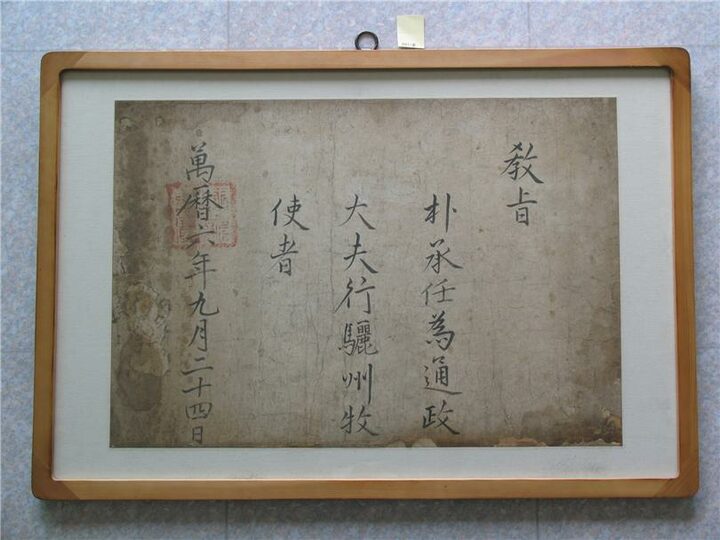 教旨
朴承任為通政
大夫行驪州牧
使者
萬曆六年九月二十四日